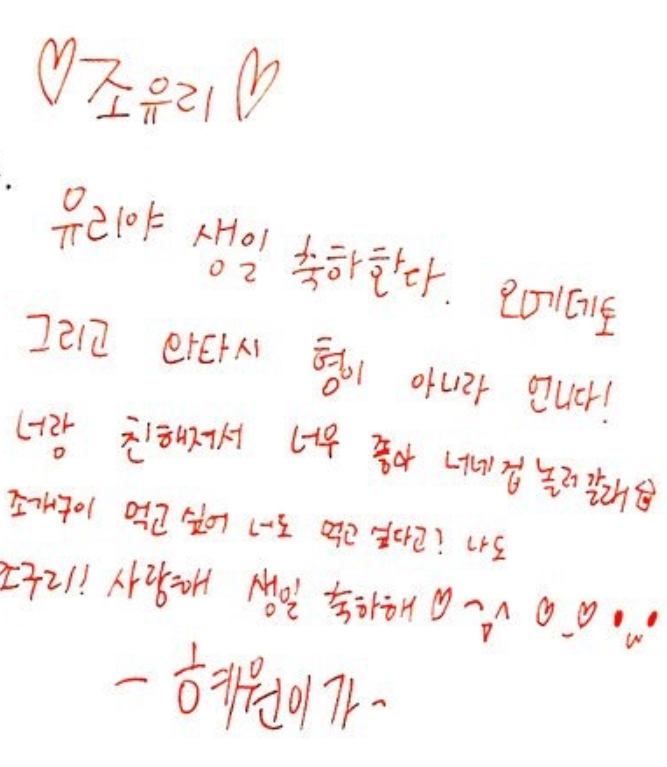 ♡조유리♡
유리야 생일 축하한다. 오메데토
그리고 와타시 형이 아니라 언니다!
너랑 친해져서 너무 좋아 너네 집 놀러갈래
조개구이 먹고 싶어 너도 먹고 싶다고? 나도
조구리! 사랑해 생일 축하해 ♡
- 혜원이가 -